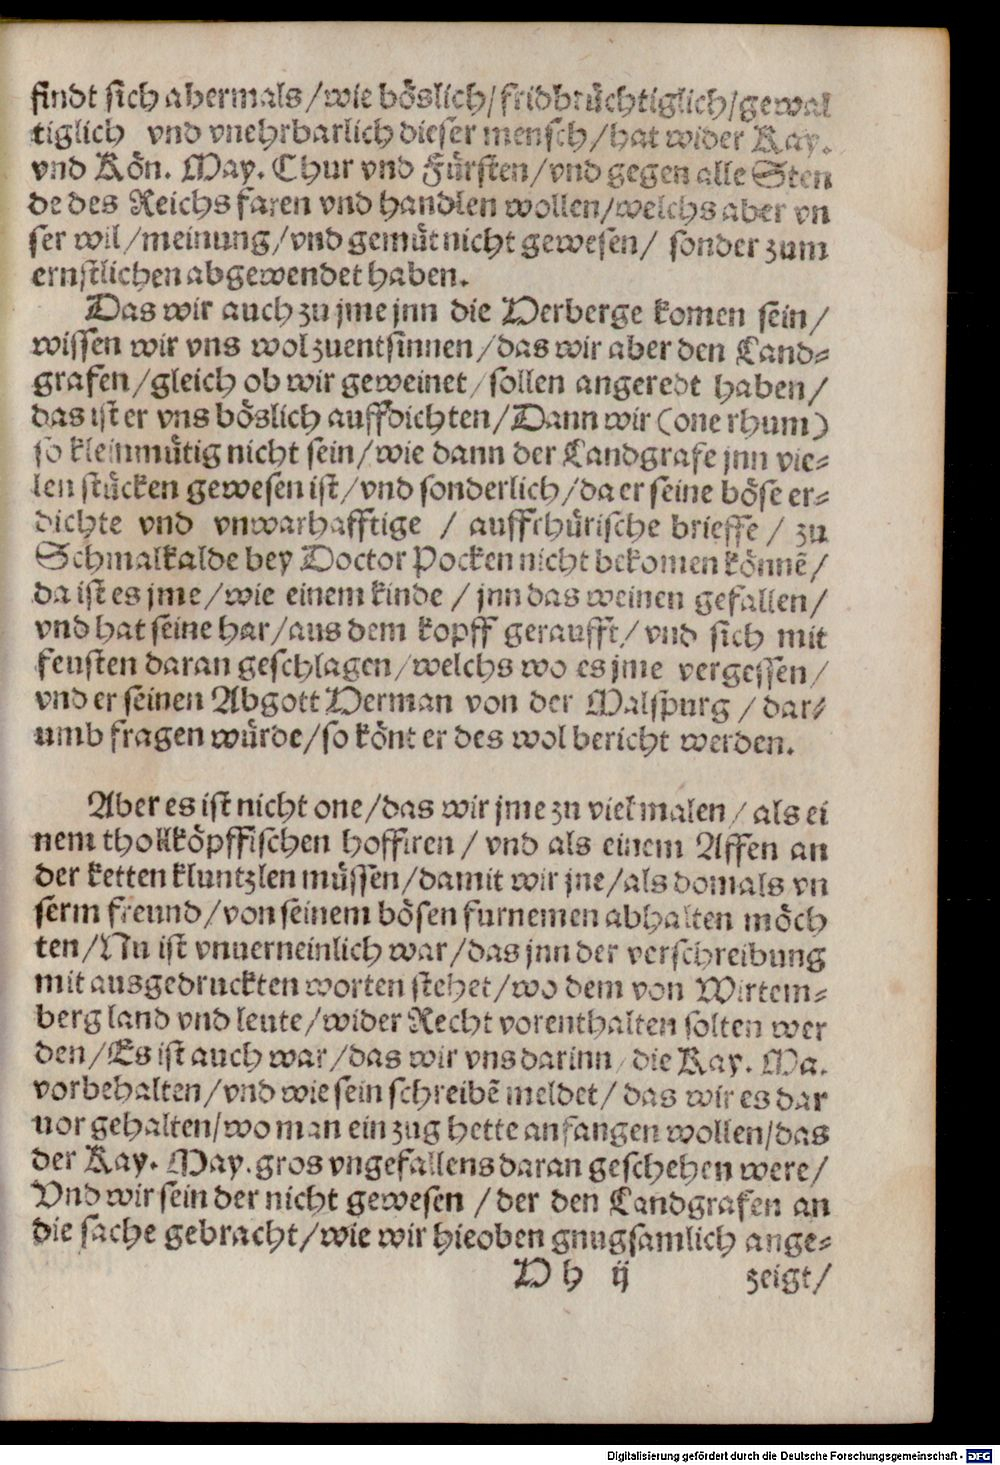 findt sich abermals/wie böslich/fridbrüchtiglich/gewal
tiglich vnd vnehrbarlich dieser mensch/hat wider Kay.
vnd Kön. May. Chur vnd Fürsten/vnd gegen alle Sten
de des Reichs faren vnd handlen wollen/welchs aber vn
ser wil/meinung/vnd gemüt nicht gewesen/ sonder zum
ernstlichen abgewendet haben.
Das wir auch zu jme jnn die Herberge komen sein/
wissen wir vns wol zuentsinnen/das wir aber den Land-
grafen/gleich ob wir geweinet/sollen angeredt haben/
das ist er vns böslich auffdichten/Dann wir (one rhum)
so kleinmütig nicht sein/wie dann der Landgrafe jnn vie-
len stücken gewesen ist/vnd sonderlich/da er seine böse er-
dichte vnd vnwarhafftige / auffrhürische brieffe / zu
Schmalkalde bey Doctor Pocken nicht bekomen könnē/
da ist es jme/wie einem kinde / jnn das weinen gefallen/
vnd hat seine har/aus dem kopff geraufft/ vnd sich mit
feusten daran geschlagen/welchs wo es jme vergessen/
vnd er seinen Abgott Herman von der Malspurg / dar-
umb fragen würde/so könt er des wol bericht werden.
Aber es ist nicht one/das wir jme zu viel malen/ als ei
nem thollköpffischen hoffiren / vnd als einem Affen an
der ketten kluntzlen müssen/damit wir jne/als domals vn
serm freund/von seinem bösen furnemen abhalten möch
ten/Nu ist vnuerneinlich war/das jnn der verschreibung
mit ausgedruckten worten stehet/wo dem von Wirtem-
berg land vnd leute/wider Recht vorenthalten solten wer
den/Es ist auch war/das wir vns darinn/die Kay. Ma.
vorbehalten/vnd wie sein schreibē meldet/ das wir es dar
uor gehalten/wo man ein zug hette anfangen wollen/das
der Kay. May. gros vngefallens daran geschehen were/
Vnd wir sein der nicht gewesen / der den Landgrafen an
die sache gebracht/wie wir hieoben gnugsamlich ange-
H h ij zeigt/
Digitalisierung gefördert durch die Deutsche Forschungsgemeinschaft - DFG